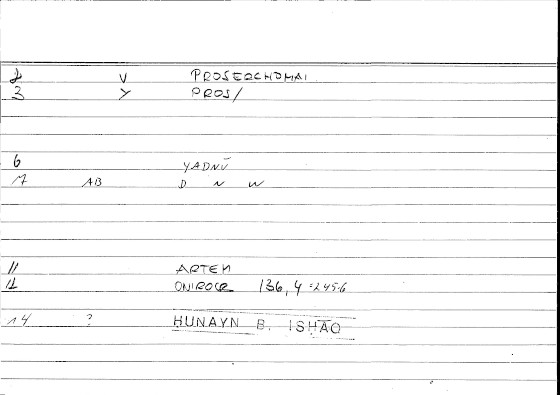 2 V PROSERCHOMAI
3 Y PROS/
6 YADNŪ
7 AB D N W
11 ARTEM
12 ONIROCR 136,4 =245,6
14 ? HUNAYN B. ISHAQ